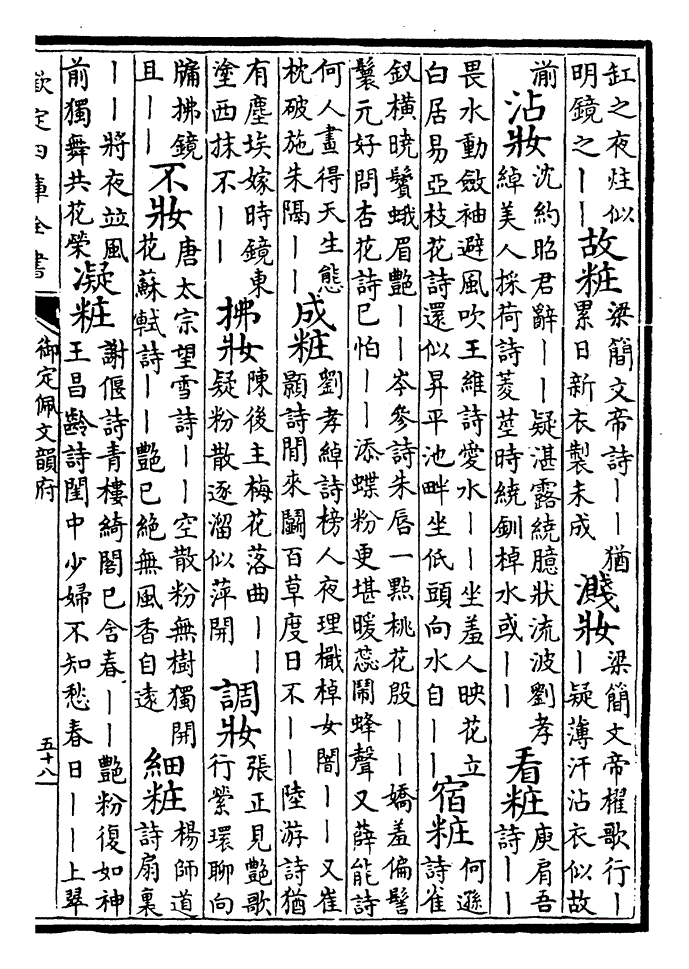 缸之夜炷似
明鏡之｜｜
故粧
梁簡文帝詩｜｜猶
累日新衣製未成
濺妝
梁簡文帝櫂歌行｜
｜疑薄汗沾衣似故
湔
沾妝
沈約昭君辭｜｜疑湛露繞臆狀流波劉孝
綽美人採荷詩菱莖時繞釧棹水或｜｜
看粧
庾肩吾
詩｜｜
畏水動斂袖避風吹王維詩愛水｜｜坐羞人映花立
白居易亞枝花詩還似昇平池畔坐低頭向水自｜｜
宿粧
何遜
詩雀
釵橫曉鬢蛾眉艷｜｜岑參詩朱唇一點桃花殷｜｜嬌羞偏髻
鬟元好問杏花詩已怕｜｜添蝶粉更堪暖蕊鬧蜂聲又薛能詩
何人畫得天生態
枕破施朱隔｜｜
成粧
劉孝綽詩榜人夜理檝棹女闇｜｜又崔
顥詩閒來鬬百草度日不｜｜陸游詩猶
有塵埃嫁時鏡東
塗西抹不｜｜
拂妝
陳後主梅花落曲｜｜
疑粉散逐溜似萍開
調妝
張正見艷歌
行縈環聊向
牖拂鏡
且｜｜
不妝
唐太宗望雪詩｜｜空散粉無樹獨開
花蘇軾詩｜｜艷已絕無風香自遠
細粧
楊師道
詩扇裏
｜｜將夜竝風
前獨舞共花榮
凝粧
謝偃詩青樓綺閣已含春｜｜艷粉復如神
王昌齡詩閨中少婦不知愁春日｜｜上翠
欽定四庫全書
御定佩文韻府
五十八